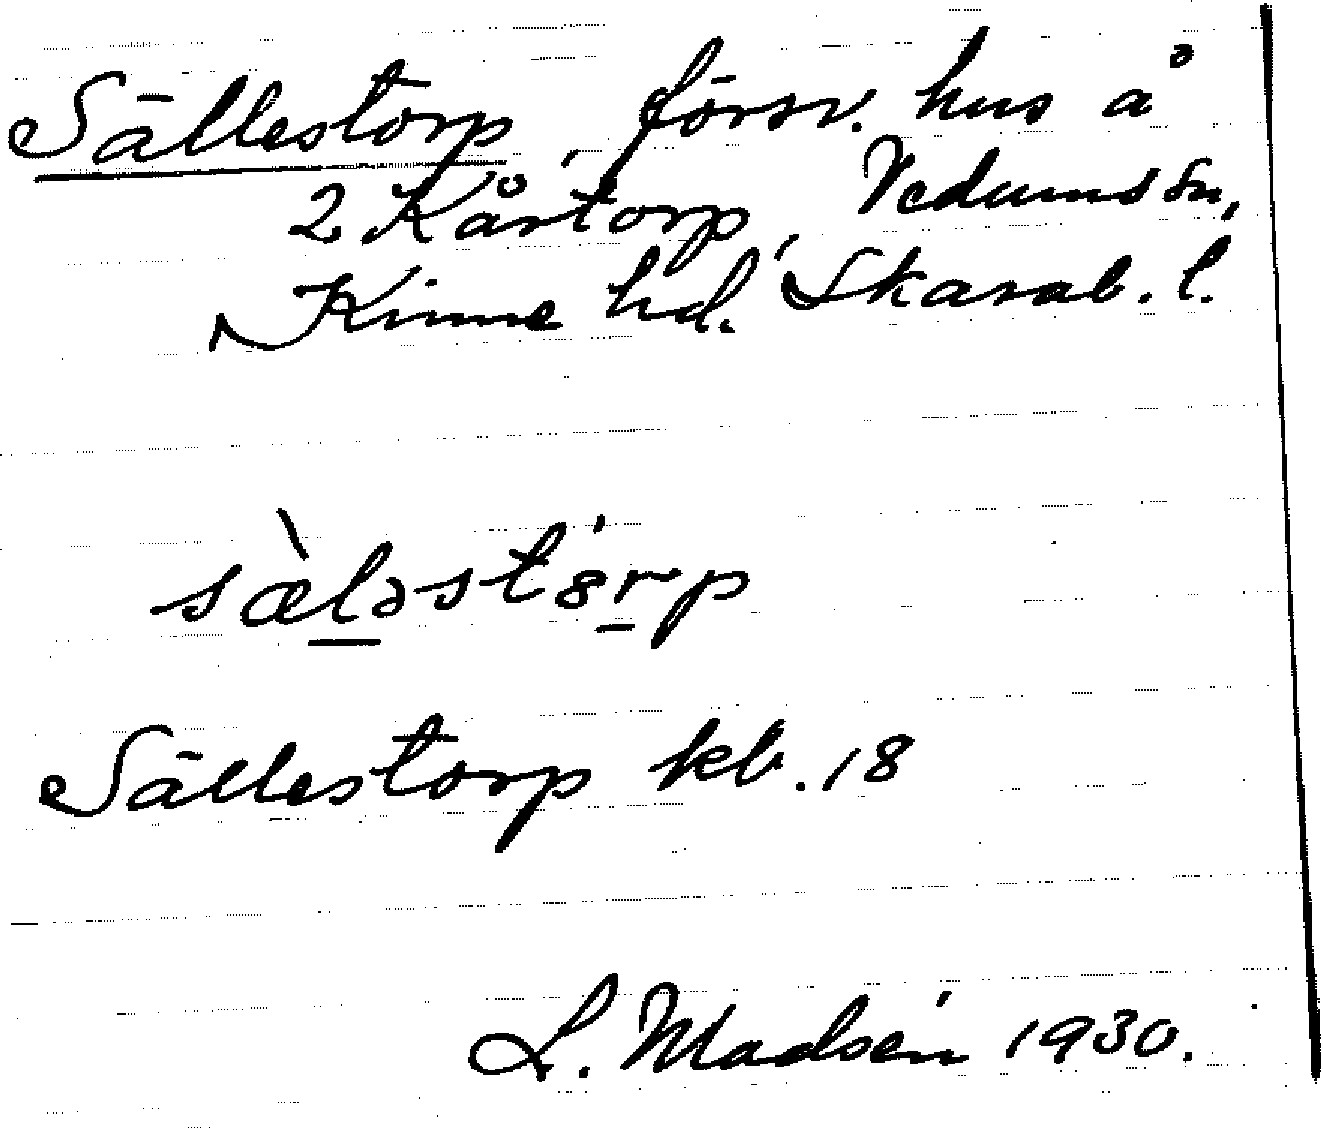 Sällestorp, försv. hus å
2 Kårtorp, Vedums sn,
Kinne hd. Skarab. l.
sæ̀ləstȣ́rp
Sällestorp kb. 18
L. Madsén 1930.